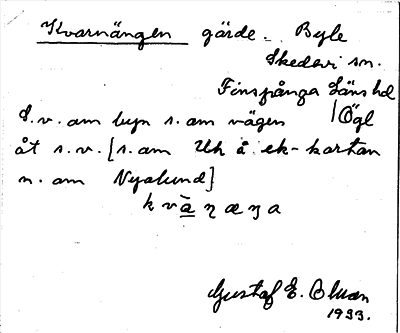 Kvarnängen gärde. Byle
Skedevi sn.
Finspånga läns hd
S.v. om byn s. om vägen /Ögl
åt s.v. [s. om Uh å ek-kartan
n. om Nyalund]
Gustaf E.
1933.